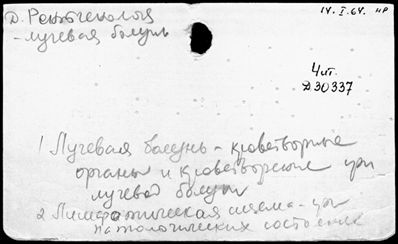 Д. Рентгенология
14.I.64. НР
- лучевая болезнь
Чит.
Д30337
1 Лучевая болезнь - кроветворные
органы и кроветворение при
лучевой болезни
2 Лимфатическая система - при
патологических состояниях